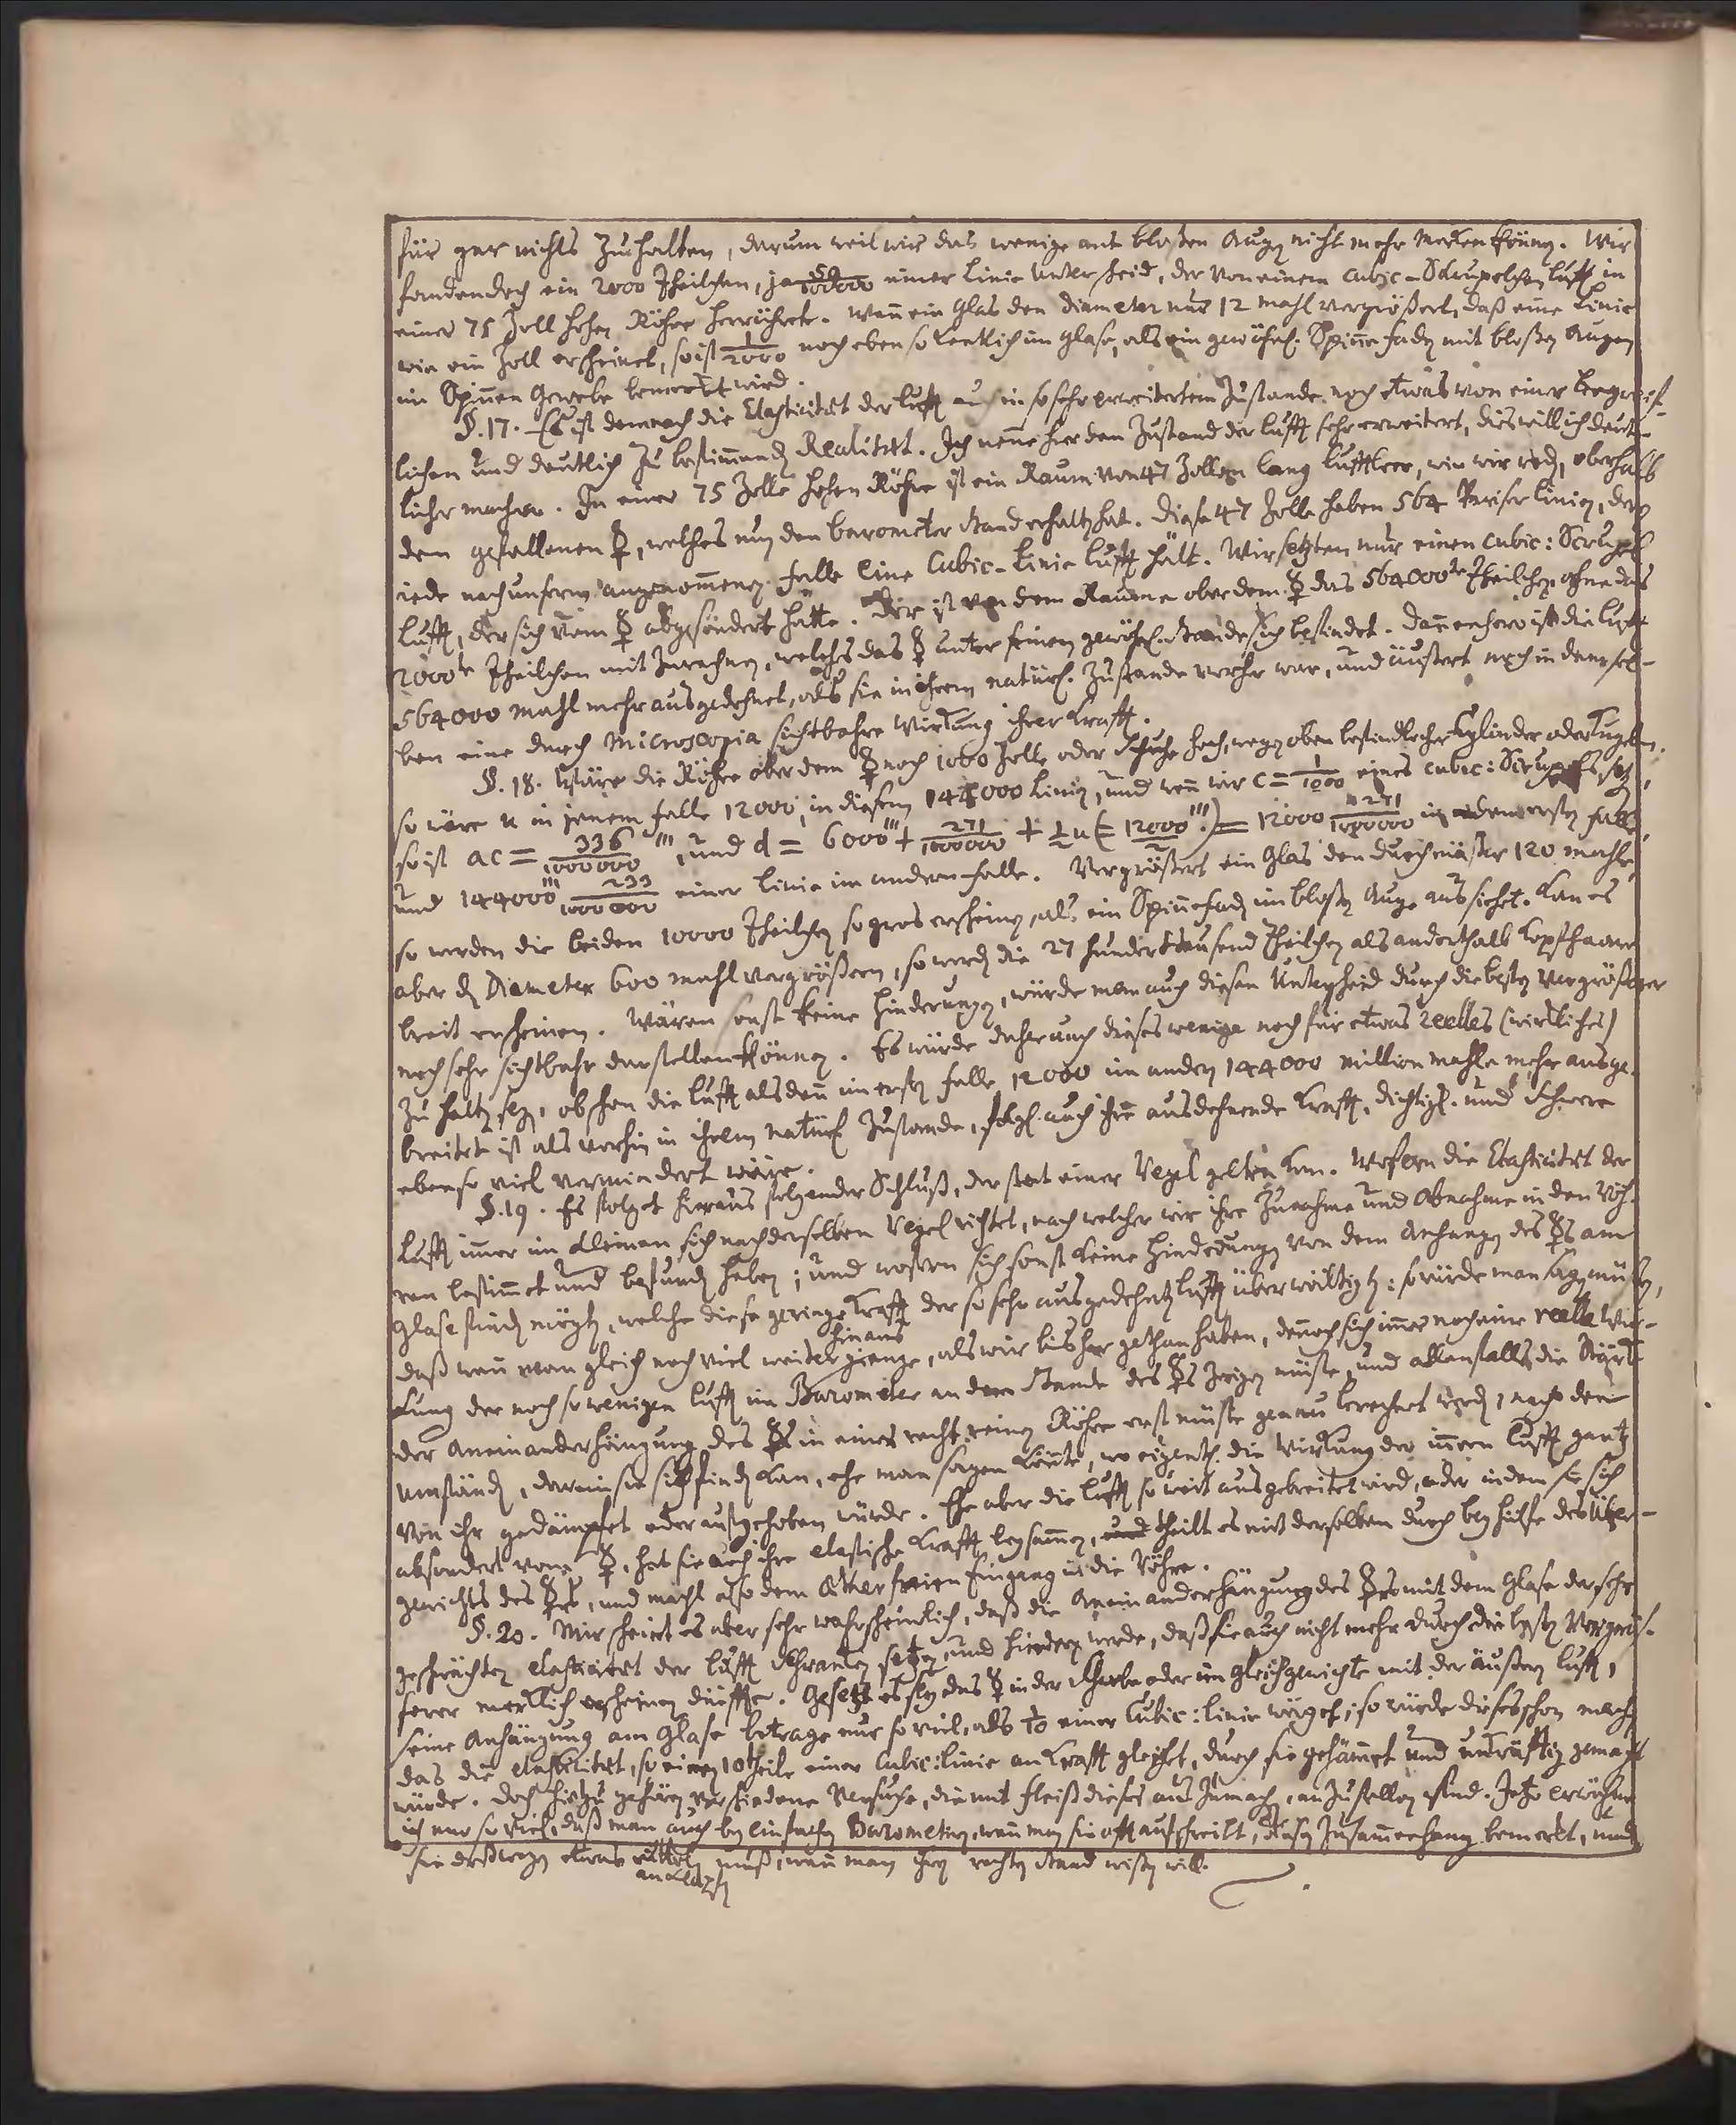 für gar nichts zuhalten, darum weil wir das wenige mit bloßen Augen nicht mehr merken können. Wir
fanden doch ein 2000 Theilchen, ja 50/100000 einer Linie Unterscheid, der von einem cubic-Scrupelchen Lufft in
einer 75 Zoll hohen Röhre herrührete. Wenn ein Glas den diameter nur 12 mahl vergrößert, daß eine Linie
wie ein Zoll erscheinet, so ist 1/2000 noch eben so kentlich im Glase, als ein gewöhnl. Spinnefaden mit bloßen Augen
im Spinnen Gewebe bemerkt wird.
§. 17. Es ist demnach die Elasticität der Lufft auch in so sehr erweitertem Zustande noch etwas von einer begreif-
lichen und deutlich zu bestimmenden Realität. Ich nenne hier den Zustand der Lufft sehr erweitert, dies will ich deut-
licher machen. In einer 75 Zolle hohen Röhre ist ein Raum von 47 Zollen lang lufftleer, wie wir reden, oberhalb
dem gefallenen ☿, welches nun den barometer Stand erhalten hat. Diese 47 Zolle haben 564 Pariser Linien, deren
iede nach unserm angenommenen Falle eine Cubic-Linie Lufft hält. Wir setzten nur einen cubic: Scrupel
Lufft, der sich vom ☿ abgesondert hätte. Dir ist von dem Raume ober dem ☿ das 564000te Theilchen, ohne das
2000te Theilchen mit zurechnen, welches das ☿ unter seinem gewöhnl. Stande sich befindet. Dannenhero ist die Lufft
564000 mahl mehr ausgedehnet, als sie in ihrem natürl. Zustande vorher war, und äußert noch in demsel-
ben eine durch Microscopia sichtbahre Wirkung ihrer Krafft.
§. 18. Wäre die Röhre ober dem ☿ noch 1000 Zolle oder Schuhe hoch, wegen oben befindlicher Cylinder oder Kugeln,
so wäre u in jenem Falle 12000, in diesem 144000 Linien, und wenn wir c = 1/1000 eines cubic: Scrupels setzen,
so ist ac = 336/1000000 ''', und d = 6000''' + 271/1000000 + 1/2 u (= 12000'''/2) = 12000 271/1000000 in dem ersten Falle,
und 144000''' 233/1000000 einer Linie im andern Falle. Vergrößert ein Glas den durchmäßer 120 mahl,
so werden die beiden 10000 Theilchen so gros erscheinen, als ein Spinnefaden im bloßen Auge aussiehet. Kan es
aber den Diameter 600 mahl vergrößern, so werden die 27 hunderttausend Theilchen als anderthalb Kopfhaare
breit erscheinen. Wären sonst keine Hinderungen, würde man auch diesen Unterscheid durch die besten Vergrößerer
noch sehr sichtbahr darstellen können. Es würde daher auch dieses wenige noch für etwas reelles (wirkliches)
zu halten seyn, obschon die Lufft alsdenn im ersten Falle 12000 im andern 144000 million mahle mehr ausge-
breitet ist als vorhin in ihrem natürl. Zustande, folgl. auch ihre ausdehnende Krafft, dichtigk. und Schwere
eben so viel vermindert wäre.
§. 19. Es folget hieraus folgender Schluß, der statt einer Regel gelten kan. Wofern die Elasticität der
Lufft immer im Kleinen sich nach derselben Regel richtet, nach welcher wir ihre Zunahme und Abnahme in den Röh-
ren bestimmet und befunden haben; und wofern sich sonst keine Hinderungen von dem Anhangen des ☿s am
Glase finden mögten, welche diese geringe Krafft der so sehr ausgedehnten Lufft überwältigten: so würde man sagen müßen,
daß wenn man gleich noch viel weiter hinaus gienge, als wir bis her gethan haben, dennoch sich immer noch eine reelle Wir-
kung der noch so wenigen Lufft im Barometer an dem Stande des ☿s zeigen müste, und allenfalls die Stärk
der Aneinanderhängung des ☿s in einer recht reinen Röhre erst müste genau berechnet werden, nach den
Umständen, darein sie sich finden kan, ehe man sagen könte, wo eigentl. die Wirkung der innern Lufft gantz
von ihr gedämpfet oder aufgehoben würde. Ehe aber die Lufft so weit ausgebreitet wird, oder indem sie sich
absondert vom ☿, hat sie auch ihre elastische Krafft beysammen, theilt es mit derselben durch beyhülfe des Über-
gewichts des ☿rs, und macht also dem Äther freien Eingang in die Röhre.
§. 20. Mir scheint es aber sehr wahrscheinlich, daß die Aneinanderhängung des ☿rs mit dem Glase der sehr
geschwächten elasticität der Lufft Schranken setzen und hindern werde, daß sie auch nicht mehr durch die besten Vergrös-
serer merklich erscheinen dürffte. Gesetzt es sey das ☿ in der Schwebe oder im Gleichgewichte mit der äußern Lufft,
seine Anhängung am Glase betrage nur so viel, als 1/10 einer Cubic: linie wieget; so würde dieses schon machen,
das die elasticität, so einem 10theile einer Cubic: linie an Krafft gleichet, durch sie gehämmet und unkräfftig gemacht
würde. Doch hierzu gehören verschiedene Versuche, die mit Fleiß dieses auszumachen, anzustellen sind. Jetzo erwähne
ich nur so viel, daß man auch bey einfachen Barometern, wenn man sie offt aufschreibt, diesen Zusammenhang bemerkt, und
sie deßwegen etwas rütteln muß, wenn man ihren rechten Stand wißen will.
anklopfen